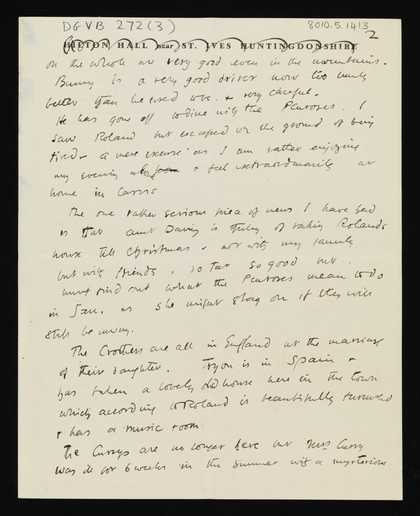 DGVB 272(3)
8010.5.1413
2
HILTON HALL near ST. IVES HUNTINGDONSHIRE
on the whole are very good even in the mountains.
Bunny is a very good driver now too much
better than he used to be & very careful.
He has gone off to dine with the Penroses. I
saw Roland but escaped on the ground of being
tired – a mere excuse as I am rather enjoying
my evening & feel extraordinarily at
home in
The one rather serious piece of news I have had
is that is of taking Rolands
house till Christmas – not with my family
but with friends, so far so good but
must find out what the Penroses mean to do
in Jan. as she might stay on if they will
still be away.
The Crothers are all in England at the marriage
of their daughter. is in Spain &
has taken a lovely old house here in the town
which according to Roland is beautifully furnished
& has a music room.
The Currys are no longer here but Mrs Curry
was ill for 6 weeks in the summer with a mysterious